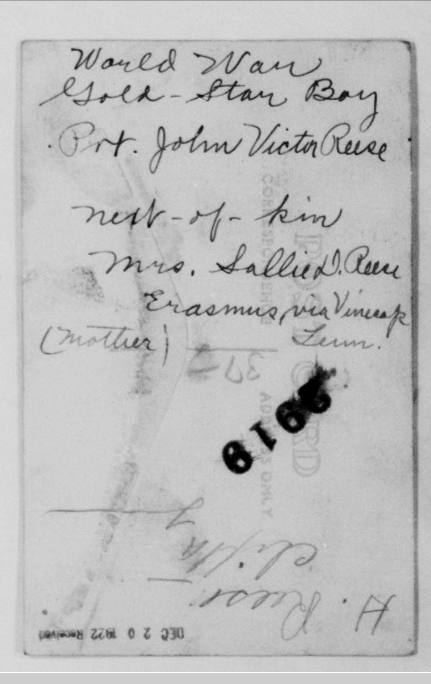 World War
Gold-Star Boy
Pvt. John Victor Reese
next-of-kin
Mrs. Sallie D. Reese
Erasmus, via
(Mother) Tenn.
CORRESPONDENCE
POST CARD
ADDRESS ONLY
37
2919
H. Reese
DEC 20 1922 Received